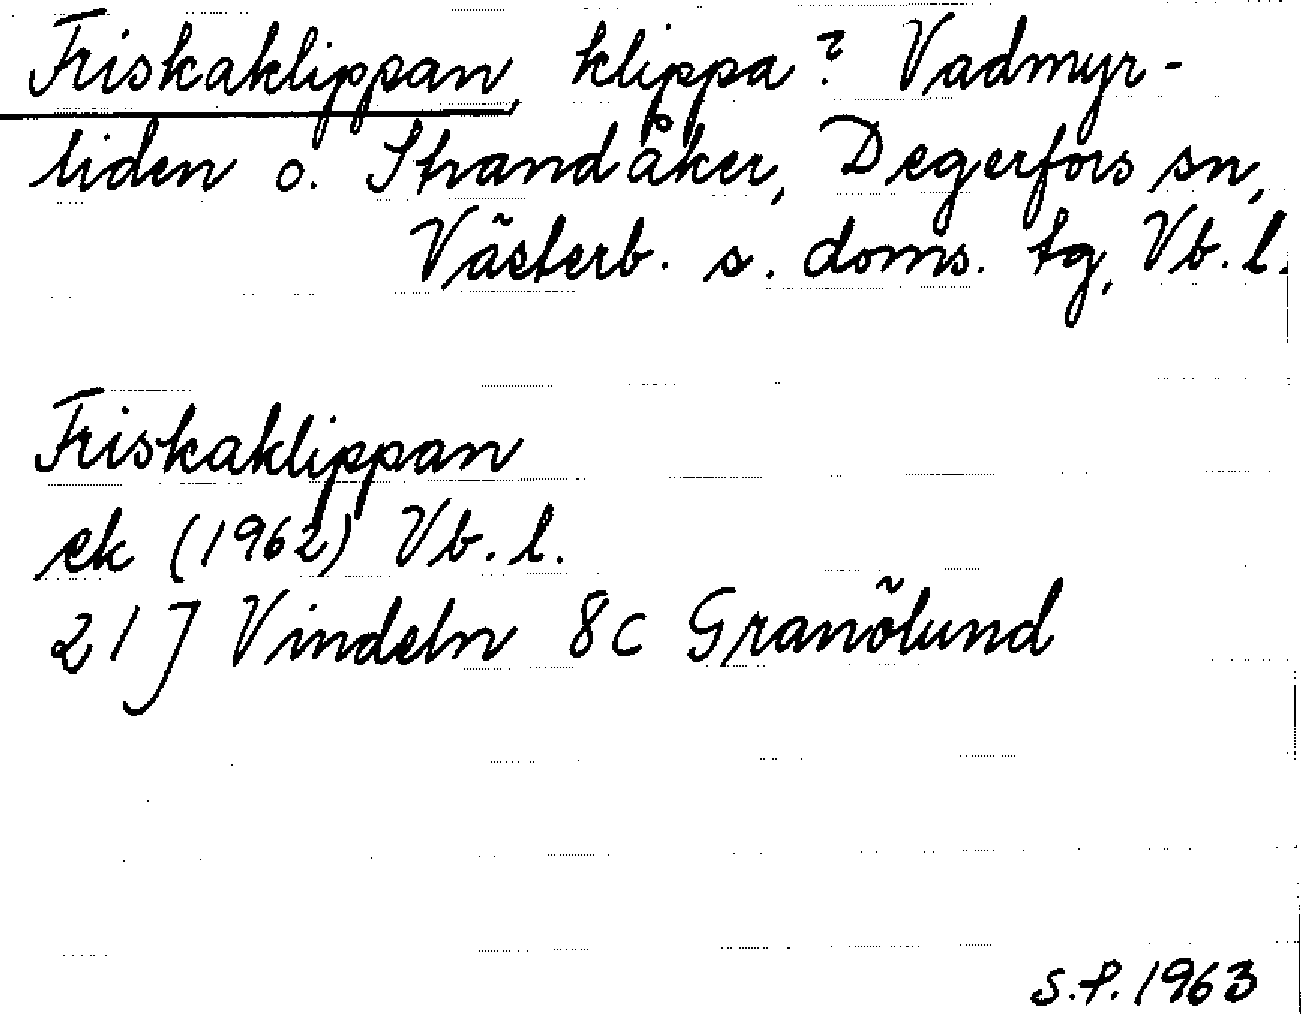 Friskaklippan, klippa? Vadmyr-
liden o. Strandåker, Degerfors sn,
Västerb. s. doms. tg, Vb. l.
Friskaklippan
ek (1962) Vb. l.
21 J Vindeln 8c Granölund
S.F. 1963